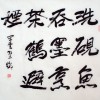 洗硯魚
吞墨烹
茶鶴避
煙